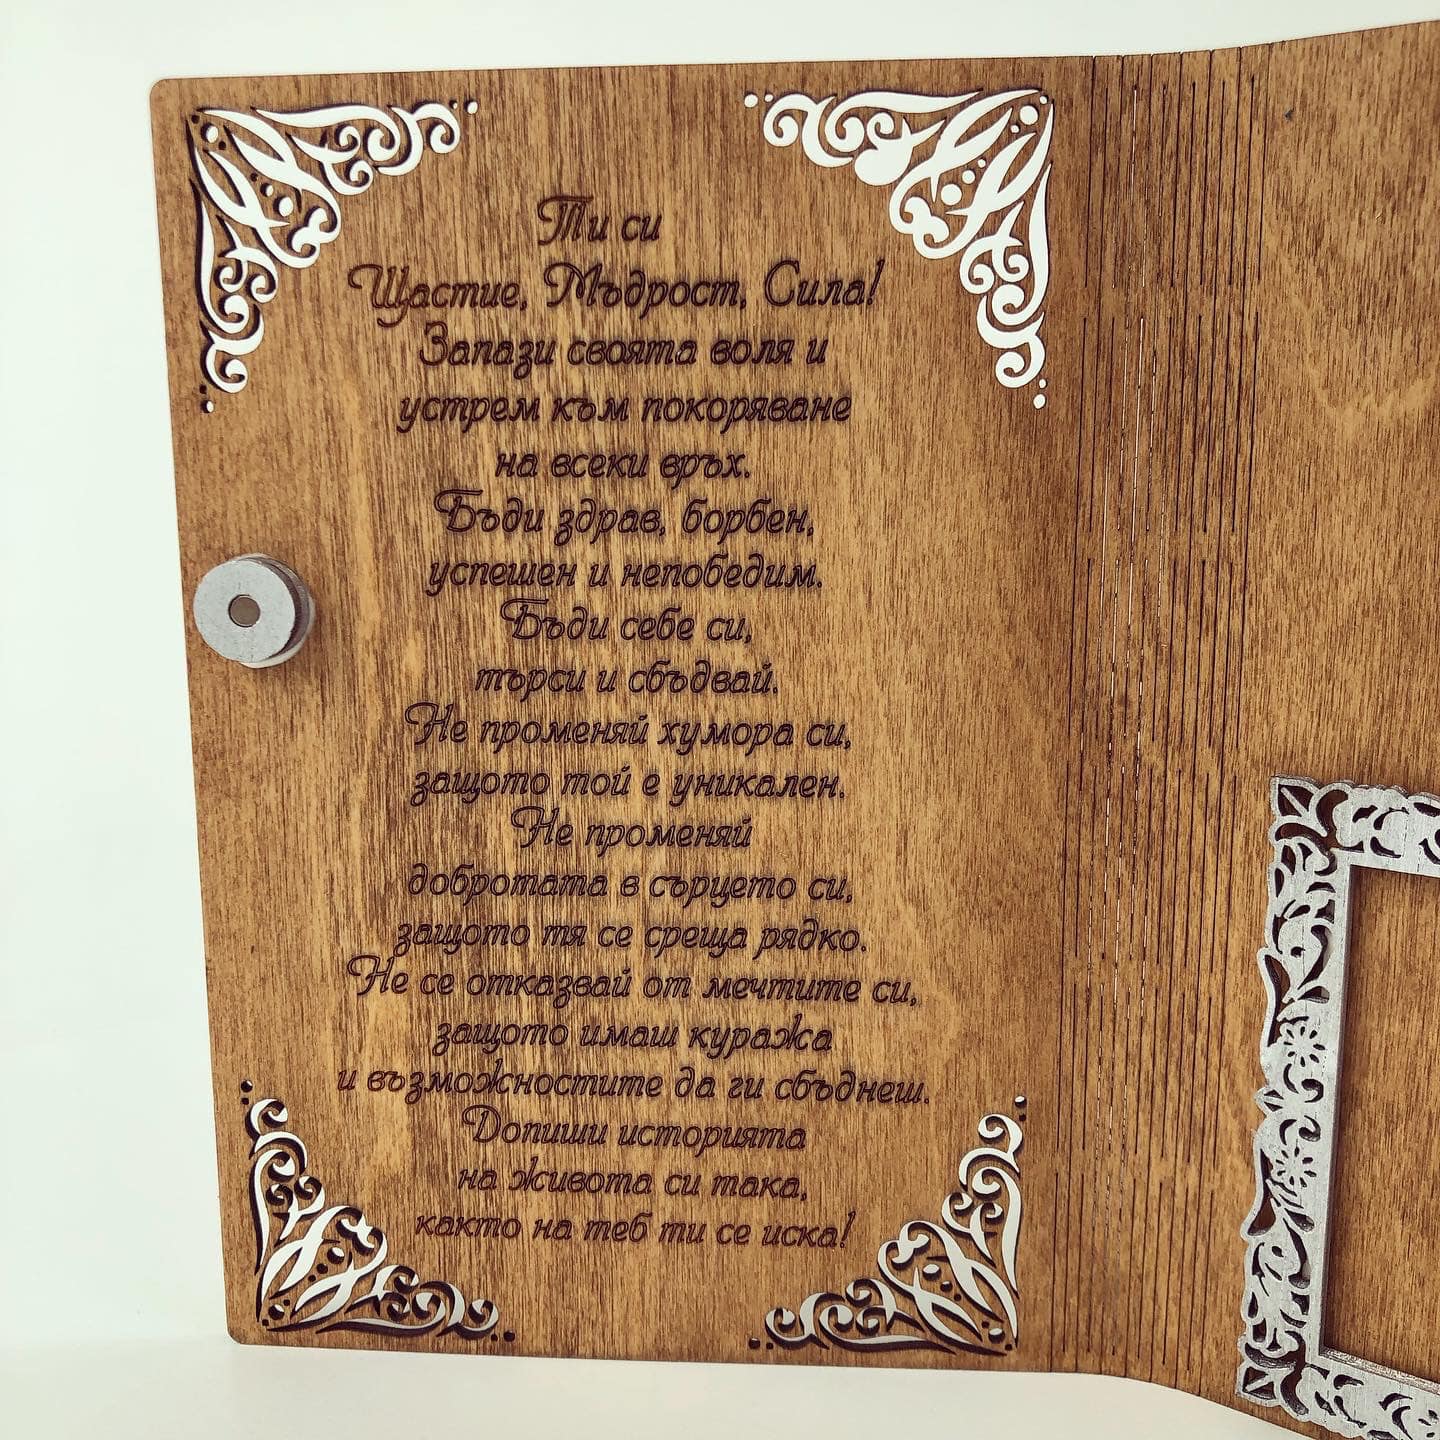 Ти си
Щастие, Мъдрост, Сила!
Запази своята воля и
устрем към покоряване
на всеки връх.
Бъди здрав, борбен,
успешен и непобедим.
Бъди себе си,
търси и сбъдвай.
Не променяй хумора си,
защото той е уникален.
Не променяй
добротата в сърцето си,
защото тя се среща рядко.
Не се отказвай от мечтите си,
защото имаш куража
и възможностите да ги сбъднеш.
Допиши историята
на живота си така,
както на теб ти се иска!